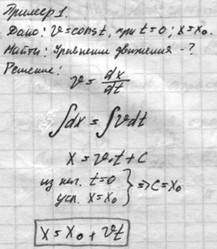 Пример 1.
Дано: v=const, при t=0; x=x₀.
Найти: Уравнение движения -?
Решение:
v = dx/dt
∫dx = ∫vdt
x = v·t + C
из нач. t=0
усл. x=x₀ } => C=x₀
x = x₀ + vt